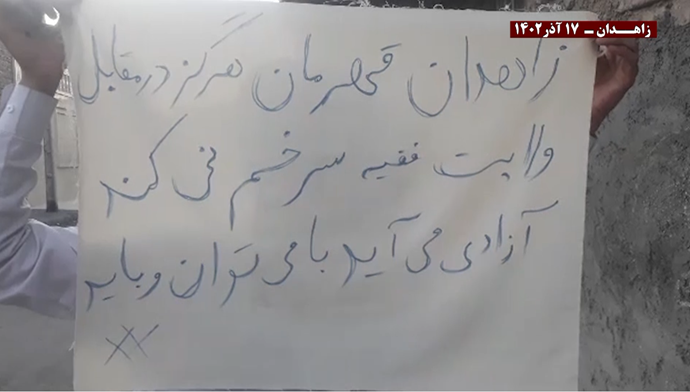 زاهدان ــ ۱۷ آذر ۱۴۰۲
زاهدان قهرمان هرگز در مقابل
ولایت فقیه سر خم نمی کند
آزادی می آید با می توان و باید